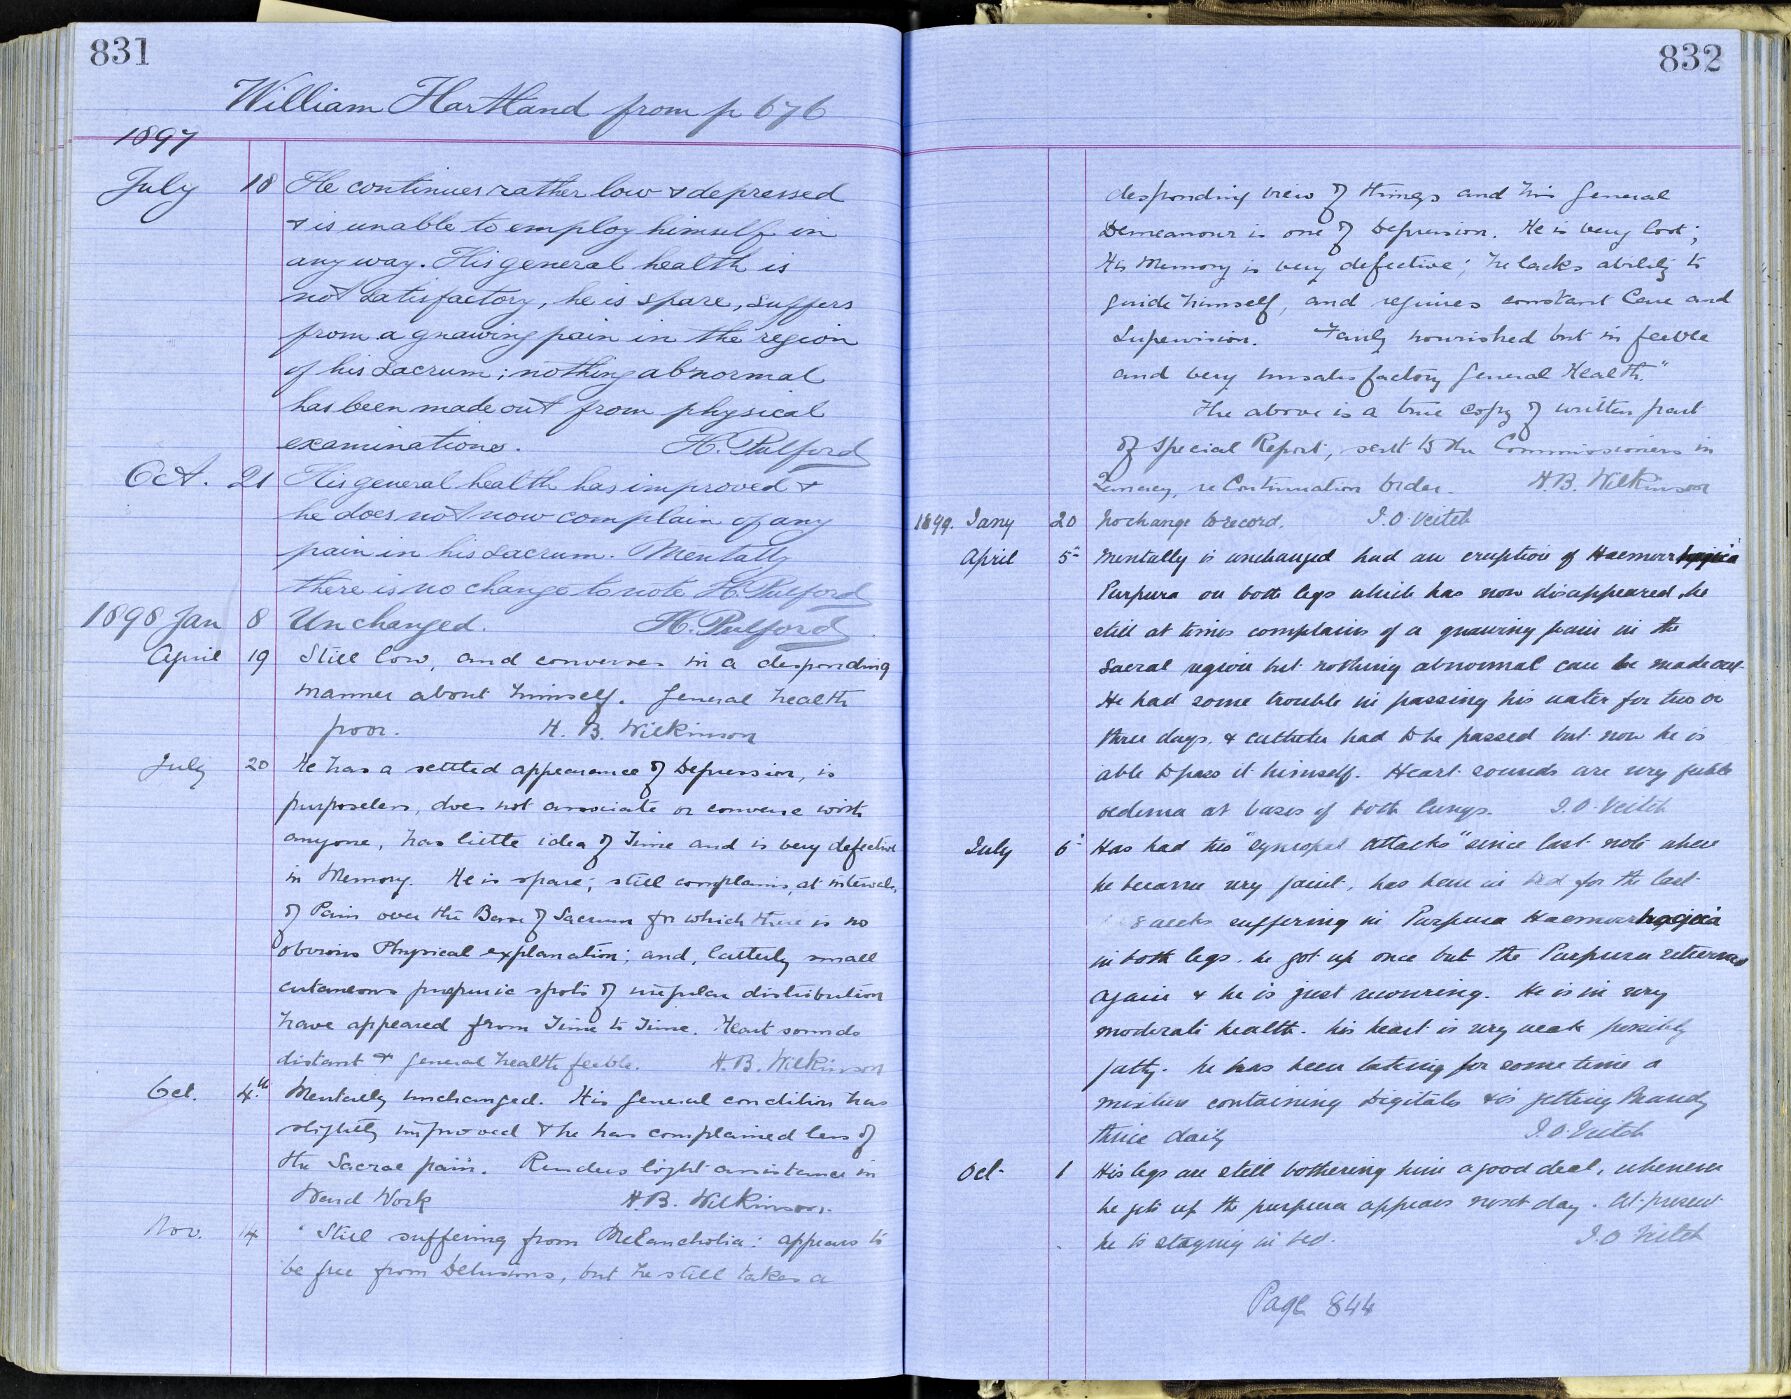 831
William Hartland from p 676
1897
July 18 He continues rather low & depressed
& is unable to employ himself in
any way. His general health is
not satisfactory, he is spare, suffers
from a gnawing pain in the region
of his sacrum; nothing abnormal
has been made out from physical
examinations. H. Pulford
Oct. 21 His general health has improved &
he does not now complain of any
pain in his sacrum. Mentally
there is no change to note H. Pulford
1898 Jan 8 Unchanged. H. Pulford
April 19 Still low, and converses in a desponding
manner about himself. General health
poor. H. B. Wilkinson
July 20 He has a settled appearance of Depression, is
purposeless, does not associate or converse with
anyone, has little idea of Time and is very defective
in Memory. He is spare; still complains, at intervals,
of Pain over the Base of Sacrum for which there is no
obvious Physical explanation; and, latterly small
cutaneous purpuric spots of irregular distribution
have appeared from Time to Time. Heart sounds
distant & general health feeble. H. B. Wilkinson
Oct. 4th Mentally unchanged. His general condition has
slightly improved & he has complained less of
the Sacral pain. Renders light assistance in
Ward Work H.B. Wilkinson.
Nov. 14 "Still suffering from Melancholia: appears to
be free from Delusions, but he still takes a
832
desponding view of things and his general
Demeanour is one of Depression. He is very lost;
His Memory is very defective; he lacks ability to
guide himself, and requires constant Care and
Supervision. Fairly nourished but in feeble
and very unsatisfactory general Health."
The above is a true copy of written part
of Special Report, sent to the Commissioners in
Lunacy, re Continuation Order. H.B. Wilkinson
1899. Jany 20 No change to record. J.O. Veitch
April 5 Mentally is unchanged had an eruption of Haemorrhagica
Purpura on both legs which has now disappeared, he
still at times complains of a gnawing pain in the
sacral region but nothing abnormal can be made out
He had some trouble in passing his water for two or
three days, & catheter had to be passed but now he is
able to pass it himself. Heart sounds are very feeble
oedema at bases of both lungs. J.O. Veitch
July 6 Has had two "syncopal attacks" since last note when
he became very faint, has been in bed for the last
8 weeks suffering in Purpura Haemorrhagica
in both legs. he got up once but the Purpura returned
again & he is just recovering. He is in very
moderate health. his heart is very weak possibly
fatty. he has been taking for some time a
mixture containing Digitalis & is getting Brandy
thrice daily J.O. Veitch
Oct. 1 His legs are still bothering him a good deal, whenever
he gets up the purpura appears next day. At present
he is staying in bed. J.O. Veitch
Page 844